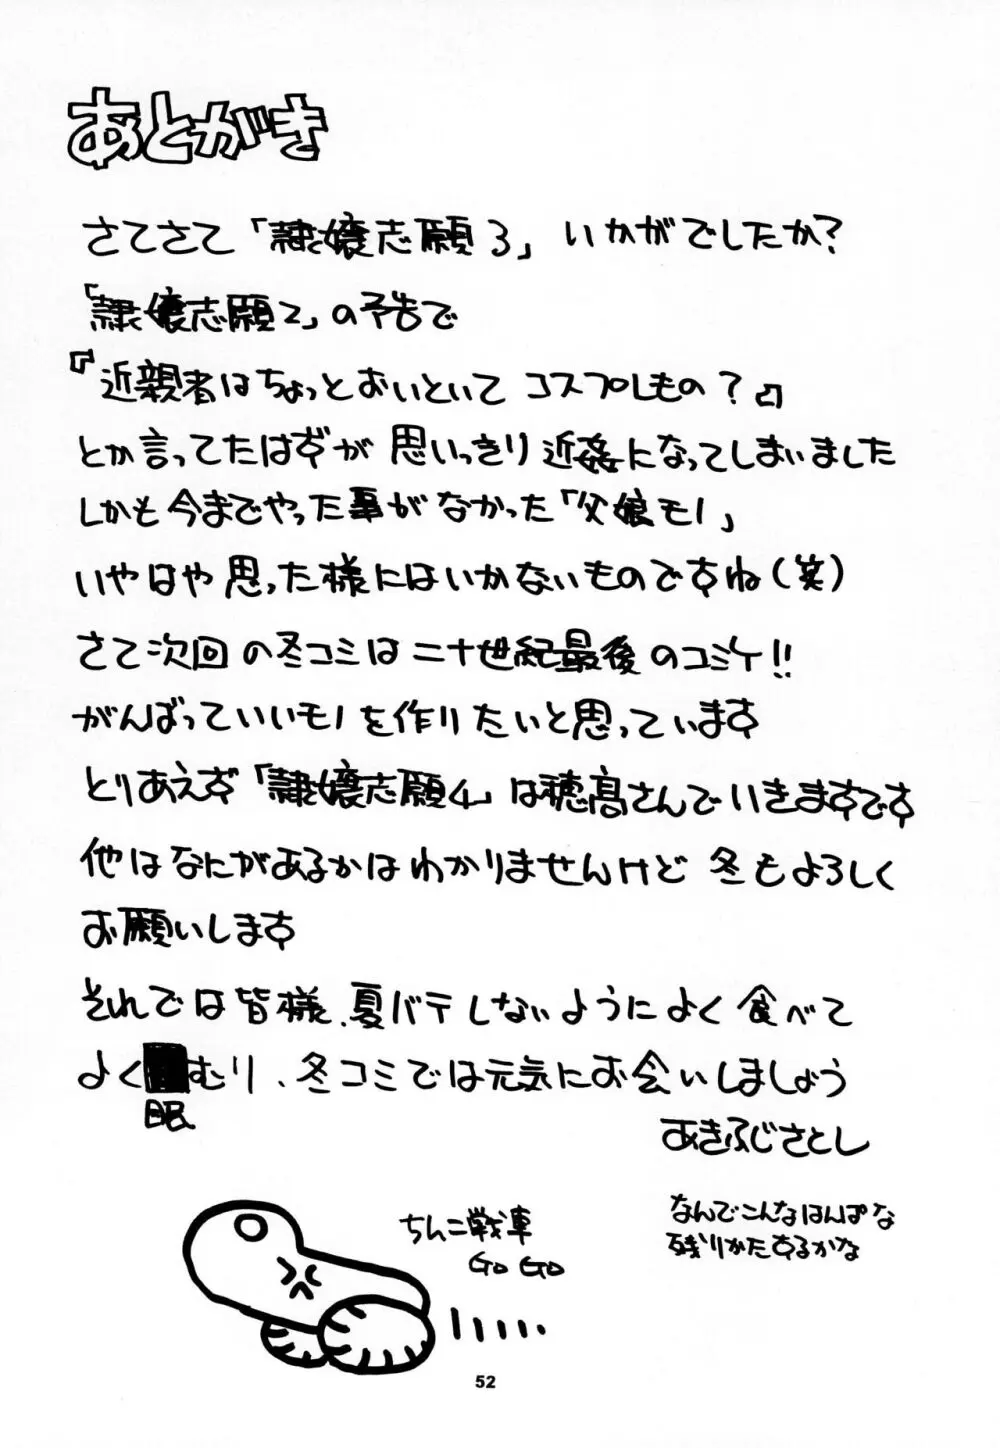 あとがき
さてさて「隷嬢志願3」いかがでしたか?
「隷嬢志願2」の予告で
『近親者はちょっとおいといてコスプレもの?』
とか言ってたはずが思いっきり近姦になってしまいました
しかも今までやった事がなかった「父娘モノ」
いやはや思った様にはいかないものですね(笑)
さて次回の冬コミは二十世紀最後のコミケ!!
がんばっていいモノを作りたいと思っています
とりあえず「隷嬢志願4」は穂高さんでいきますです
他はなにがあるかはわかりませんけど冬もよろしく
お願いします
それでは皆様、夏バテしないようによく食べて
よく眠むり、冬コミでは元気にお会いしましょう
あきふじさとし
なんでこんなはんぱな
残りかたするかな
ちんこ戦車
GO GO
52